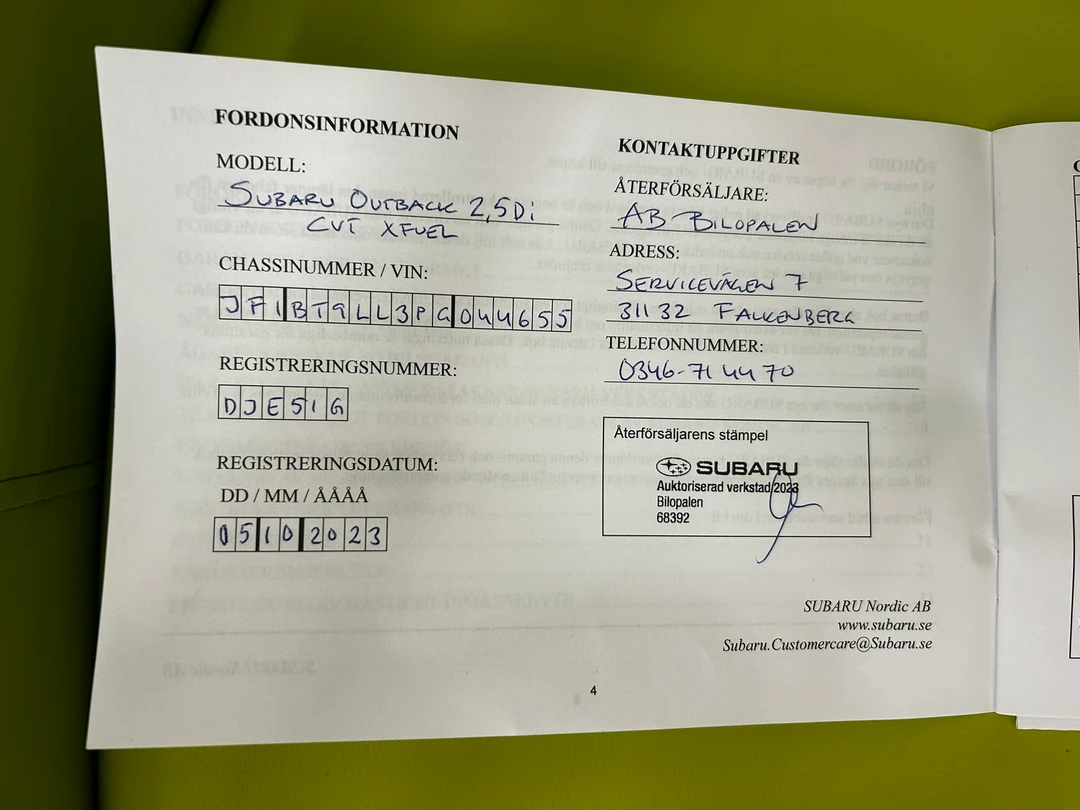 FORDONSINFORMATION
MODELL:
SUBARU OUTBACK 2,5Di
CVT XFUEL
CHASSINUMMER / VIN:
JF1BT9LL3PG044655
REGISTRERINGSNUMMER:
DJE51G
REGISTRERINGSDATUM:
DD / MM / ÅÅÅÅ
05102023
KONTAKTUPPGIFTER
ÅTERFÖRSÄLJARE:
AB BILOPALEN
ADRESS:
SERVICEVÄGEN 7
31132 FALKENBERG
TELEFONNUMMER:
0346-714470
Återförsäljarens stämpel
SUBARU
Auktoriserad verkstad 2023
Bilopalen
68392
SUBARU Nordic AB
www.subaru.se
Subaru.Customercare@Subaru.se
4